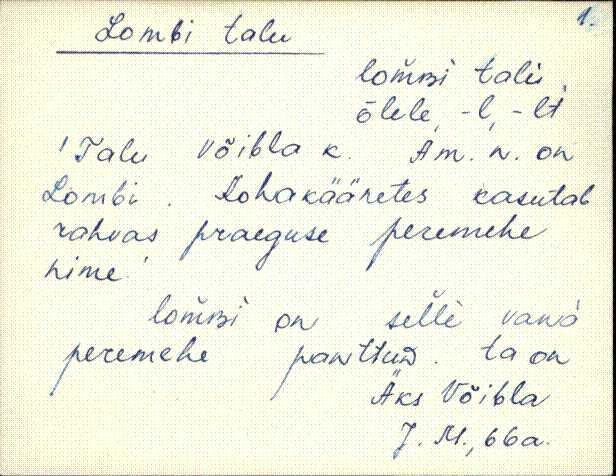 1.
Lombi talu
lom̆ʙi talù,
õlele, -l, -lt
'Talu Võibla k. Am. n. on
Lombi. Kohakäänetes kasutab
rahvas praeguse peremehe
nime.'
lom̆ʙi on selle vana
peremehe panttuᴅ. ta on
Äks Võibla
J. M., 66a.